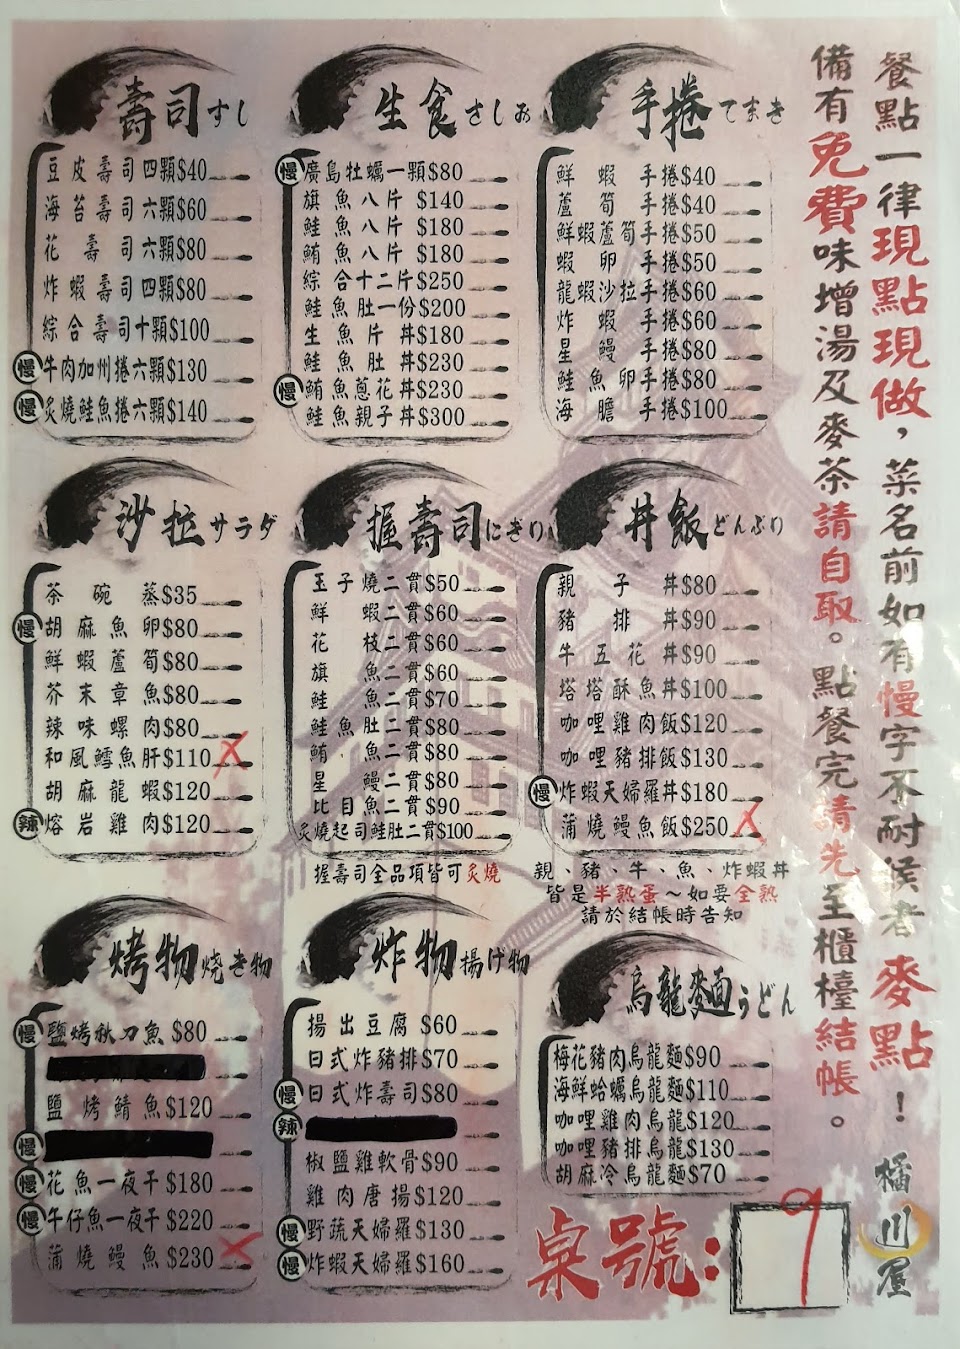 餐點一律現點現做，菜名前如有慢字不耐候者 麥點！
備有免費味增湯及麥茶請自取。點餐完請先至櫃檯結帳。
壽司すし
豆皮壽司四顆$40
海苔壽司六顆$60
花壽司六顆$80
炸蝦壽司四顆$80
綜合壽司十顆$100
慢 牛肉加州捲六顆$130
慢 炙燒鮭魚捲六顆$140
生食さしみ
慢 廣島牡蠣一顆$80
旗魚八片$140
鮭魚八片$180
鮪魚八片$180
綜合十二片$250
鮭魚肚一份$200
生魚片丼$180
鮭魚肚丼$230
慢 鮪魚蔥花丼$230
鮭魚親子丼$300
手捲てまき
鮮蝦手捲$40
蘆筍手捲$40
鮮蝦蘆筍手捲$50
蝦卵手捲$50
龍蝦沙拉手捲$60
炸蝦手捲$60
星鰻手捲$80
鮭魚卵手捲$80
海膽手捲$100
沙拉サラダ
茶碗蒸$35
慢 胡麻魚卵$80
鮮蝦蘆筍$80
芥末章魚$80
辣味螺肉$80
和風鱈魚肝$110 X
胡麻龍蝦$120
辣 熔岩雞肉$120
握壽司にぎり
玉子燒二貫$50
鮮蝦二貫$60
花枝二貫$60
旗魚二貫$60
鮭魚二貫$70
鮭魚肚二貫$80
鮪魚二貫$80
星鰻二貫$80
比目魚二貫$90
炙燒起司鮭肚二貫$100
握壽司全品項皆可炙燒
丼飯どんぶり
親子丼$80
豬排丼$90
牛五花丼$90
塔塔酥魚丼$100
咖哩雞肉飯$120
咖哩豬排飯$130
慢 炸蝦天婦羅丼$180
蒲燒鰻魚飯$250 X
親、豬、牛、魚、炸蝦丼
皆是半熟蛋～如要全熟
請於結帳時告知
烤物焼き物
慢 鹽烤秋刀魚$80
鹽烤鯖魚$120
慢
慢 花魚一夜干$180
慢 午仔魚一夜干$220
蒲燒鰻魚$230 X
炸物揚げ物
揚出豆腐$60
日式炸豬排$70
慢 日式炸壽司$80
辣
椒鹽雞軟骨$90
雞肉唐揚$120
慢 野蔬天婦羅$130
慢 炸蝦天婦羅$160
烏龍麵うどん
梅花豬肉烏龍麵$90
海鮮蛤蠣烏龍麵$110
咖哩雞肉烏龍$120
咖哩豬排烏龍$130
胡麻冷烏龍麵$70
桌號：9
橘川屋